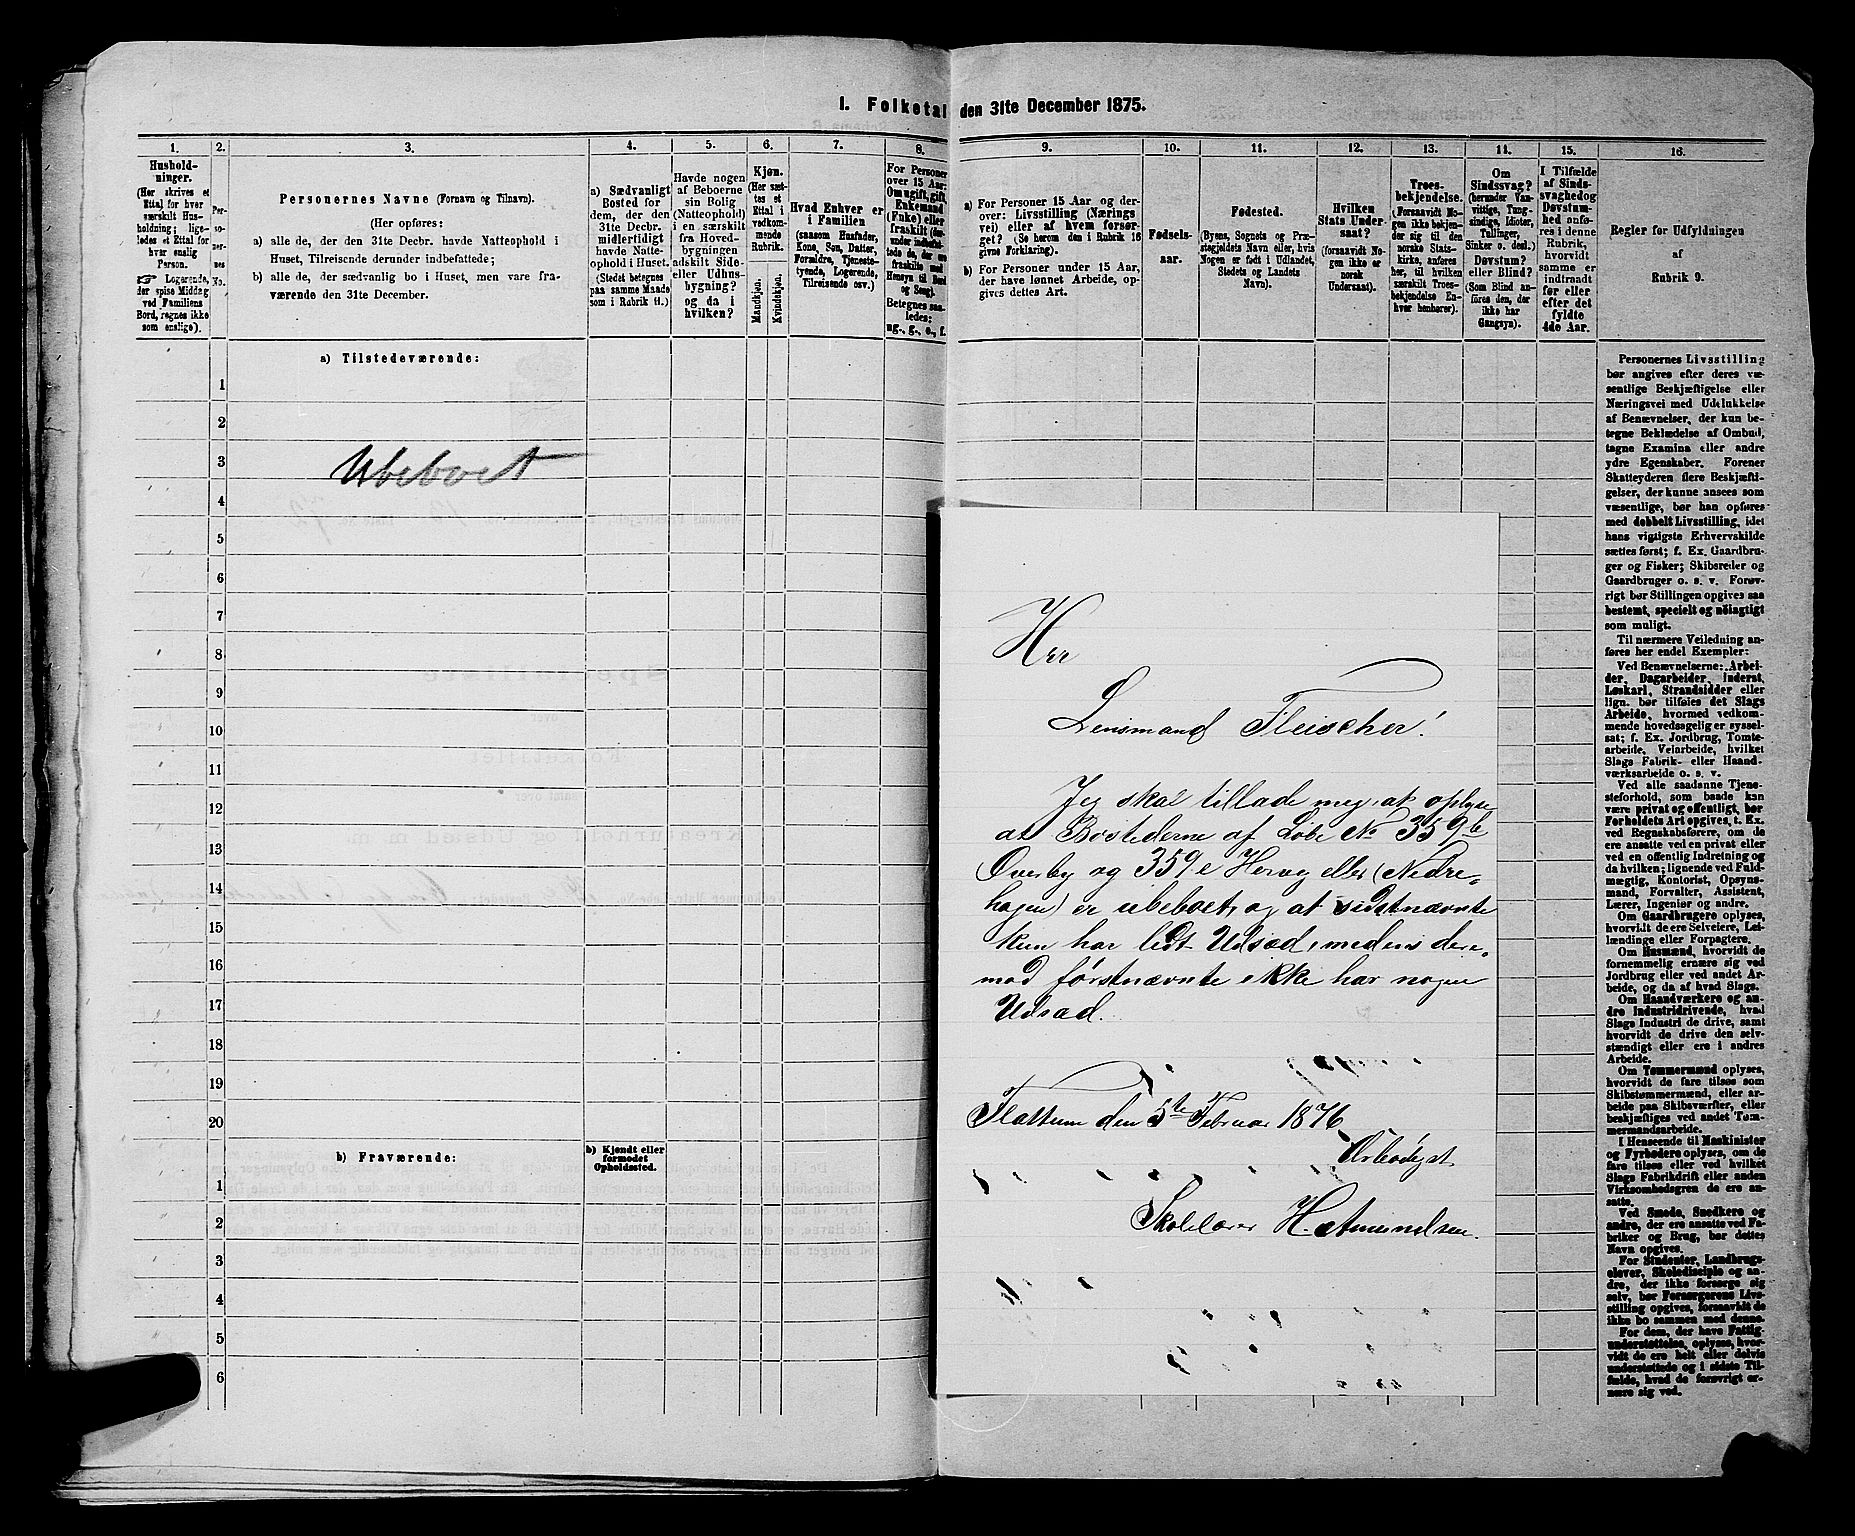 1. Folketal den 31te December 1875.
1.
Hushold-
ninger.
(Her skrives et
Ettal for hver
særskilt Hus-
holdning; lige-
ledes et Ettal for
hver enslig
Person.
☞ Logerende,
der spise Middag
ved Familiens
Bord, regnes ikke
som enslige).
2.
Per-
so-
ner-
nes
No.
3.
Personernes Navne (Fornavn og Tilnavn).
(Her opføres:
a) alle de, der den 31te Decbr. havde Natteophold i
Huset, Tilreisende derunder indbefattede;
b) alle de, der sædvanlig bo i Huset, men vare fra-
værende den 31te December.
4.
a) Sædvanligt
Bosted for
dem, der den
31te Decbr.
midlertidigt
havde Natte-
ophold i Huset.
(Stedet betegnes
paa samme Maade
som i Rubrik 11.)
5.
Havde nogen
af Beboerne
sin Bolig
(Natteophold)
i en særskilt
fra Hoved-
bygningen
adskilt Side-
eller Udhus-
bygning?
og da i
hvilken?
6.
Kjøn.
(Her sæt-
tes et
Ettal i
vedkom-
mende
Rubrik.
Mandkjøn.
Kvindekjøn.
7.
Hvad Enhver er
i Familien
(saasom Husfader,
Kone, Søn, Datter,
Forældre, Tjeneste-
tyende, Logerende,
Tilreisende osv.).
8.
For Personer
over 15 Aar:
Om ugift, gift,
Enkemand
(Enke) eller
fraskilt
Betegnes saa-
ledes:
ug., g., e., f.
9.
a) For Personer 15 Aar og der-
over: Livsstilling (Nærings-
vei) eller af hvem forsør-
get? (Se herom den i Rubrik 16
givne Forklaring).
b) For Personer under 15 Aar,
der have lønnet Arbeide, op-
gives dettes Art.
10.
Fødsels-
aar.
11.
Fødested.
(Byens, Sognets og Præ-
stegjeldets Navn eller, hvis
Nogen er født i Udlandet,
Stedets og Landets
Navn).
12.
Hvilken
Stats Under-
saat?
(forsaavidt No-
gen ikke er
norsk
Undersaat).
13.
Troes-
bekjendelse.
(Forsaavidt No-
gen ikke bekjen-
der sig til den
norske Stats-
kirke, anføres
her, til hvilken
særskilt Troes-
bekjendelse En-
hver henhører).
14.
Om
Sindssvag?
(herunder Van-
vittige, Tung-
sindige, Idioter,
Tullinger,
Sinker o. desl.).
Døvstum?
eller Blind?
(Som Blind an-
føres den, der
ikke har
Gangsyn).
15.
I Tilfælde
af Sinds-
svaghed og
Døvstum-
hed anfø-
res i denne
Rubrik,
hvorvidt
samme er
indtraadt
før eller
efter det
fyldte
4de Aar.
16.
Regler for Udfyldningen
af
Rubrik 9.
a) Tilstedeværende:
1
2
3 Ubeboet
4
5
6
7
8
9
10
11
12
13
14
15
16
17
18
19
20
b) Fraværende:
b) Kjendt eller
formodet
Opholdssted.
1
2
3
4
5
6
Herr
Lensmand Fleischer!
Jeg skal tillade meg, at oplyse
at Bostederne af Løbe No 359b
Overby og 359e Hervg eller (Nedre-
hagen) er ubeboet, og at sidstnævnte
kun har lidt Udsæd, medens der-
mod førstnævnte ikke har nogen
Udsæd.
Flattum den 5te Februar 1876
Ærbødigst
Skolelærer H. Amundsen.
Personernes Livsstilling
bør angives efter deres væ-
sentlige Beskjæftigelse eller
Næringsvei med Udelukkelse
af Benævnelser, der kun be-
tegne Beklædelse af Ombud,
tagne Examina eller andre
ydre Egenskaber. Forener
Skatteyderen flere Beskjæfti-
gelser, der kunne ansees som
væsentlige, bør han opføres
med dobbelt Livsstilling, idet
hans vigtigste Erhvervskilde
sættes først; f. Ex. Gaardbru-
ger og Fisker; Skibsreder og
Gaardbruger o. s. v. Forøv-
rigt bør Stillingen opgives saa
bestemt, specielt og nøiagtigt
som muligt.
Til nærmere Veiledning an-
føres her endel Exempler:
Ved Benævnelserne: Arbei-
der, Dagarbeider, Inderst,
Løskarl, Strandsidder eller
lign. bør tilføies det Slags
Arbeide, hvormed vedkom-
mende hovedsagelig er syssel-
sat; f. Ex. Jordbrug, Tomte-
arbeide, Veiarbeide, hvilket
Slags Fabrik- eller Haand-
værksarbeide o. s. v.
Ved alle saadanne Tjene-
steforhold, som baade kan
være privat og offentligt, bør
Forholdets Art opgives, t. Ex.
ved Regnskabsførere, om de
ere ansatte ved en privat eller
ved en offentlig Indretning og
da hvilken; lignende ved Fuld-
mægtig, Kontorist, Opsyns-
mand, Forvalter, Assistent,
Lærer, Ingeniør og andre.
Om Gaardbrugere oplyses,
hvorvidt de ere Selveiere, Lei-
lændinge eller Forpagtere.
Om Husmænd, hvorvidt de
fornemmelig ernære sig ved
Jordbrug eller ved andet Ar-
beide, og da af hvad Slags.
Om Haandværkere og an-
dre Industridrivende, hvad
Slags Industri de drive, samt
hvorvidt de drive den selv-
stændigt eller ere i andres
Arbeide.
Om Tømmermænd oplyses,
hvorvidt de fare tilsøs som
Skibstømmermænd, eller ar-
beide paa Skibsværfter, eller
beskjæftiges ved andet Tøm-
mermandsarbeide.
I Henseende til Maskinister
og Fyrbødere oplyses, om de
fare tilsøs eller ved hvilket
Slags Fabrikdrift eller anden
Virksomhedsgren de ere an-
satte.
Ved Smede, Snedkere og
andre, der ere ansatte ved Fa-
briker og Brug, bør dettes
Navn opgives.
For Studenter, Landbrugs-
elever, Skoledisciple og an-
dre, der ikke forsørge sig
selv, bør Forsørgerens Livs-
stilling opgives, forsaavidt de
ikke bo sammen med denne.
For dem, der have Fattig-
understøttelse, oplyses, hvor-
vidt de ere helt eller delvis
understøttede og i sidste Til-
fælde, hvad de forøvrigt er-
nære sig ved.